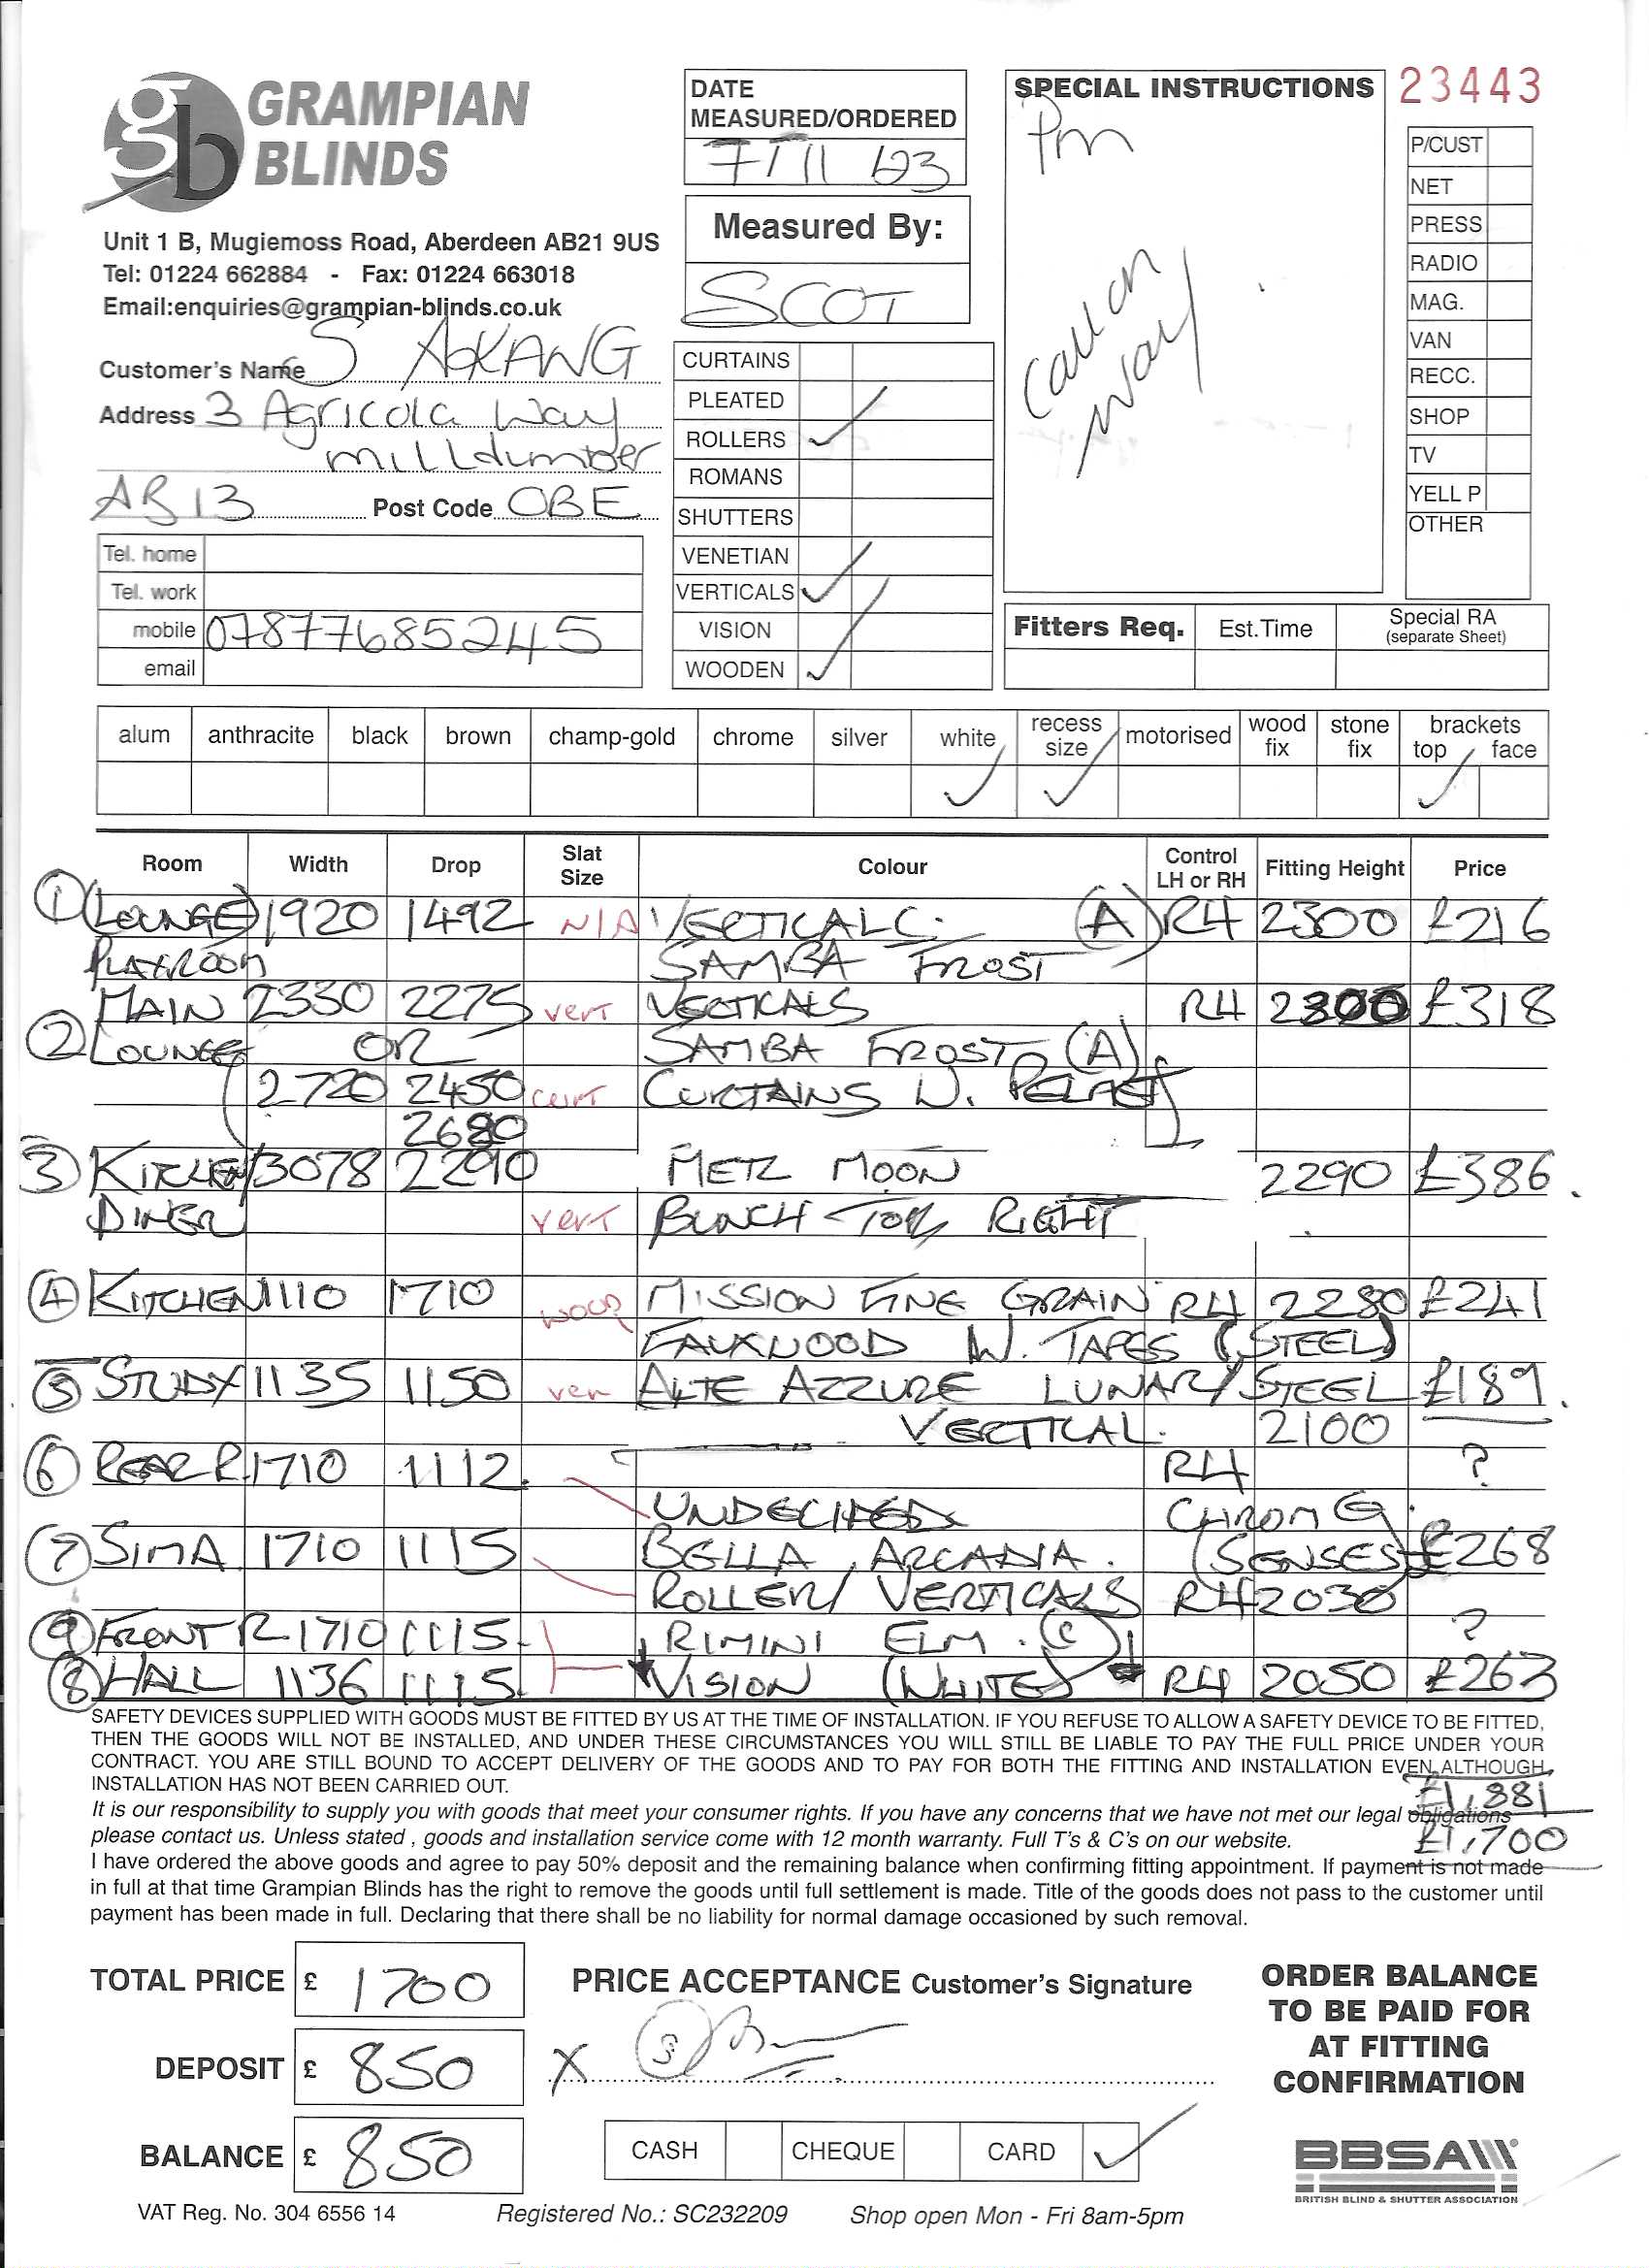 GRAMPIAN
BLINDS
Unit 1 B, Mugiemoss Road, Aberdeen AB21 9US
Tel: 01224 662884 - Fax: 01224 663018
Email:enquiries@grampian-blinds.co.uk
Customer's Name S AKANG
Address 3 Agricola Way
Milltimber
AB13 Post Code OBE
Tel. home
Tel. work
mobile 07877685245
email
DATE
MEASURED/ORDERED
7/11/23
Measured By:
SCOT
CURTAINS
PLEATED
ROLLERS ✓
ROMANS
SHUTTERS
VENETIAN
VERTICALS ✓
VISION
WOODEN ✓
SPECIAL INSTRUCTIONS
Pm
Call on
way
23443
P/CUST
NET
PRESS
RADIO
MAG.
VAN
RECC.
SHOP
TV
YELL P
OTHER
Fitters Req. Est.Time Special RA
(separate Sheet)
alum anthracite black brown champ-gold chrome silver white recess size motorised wood fix stone fix brackets top face
✓ ✓ ✓
Room Width Drop Slat Size Colour Control LH or RH Fitting Height Price
① (LOUNGE) 1920 1492 N/A VERTICALS. (A) RH 2300 £216
PLAYROOM SAMBA FROST
MAIN 2330 2275 vert VERTICALS RH 2300 £318
② LOUNGE OR SAMBA FROST (A)
2720 2450 curt CURTAINS W.
2680
③ KITCHEN/ 3078 2290 METZ MOON 2290 £386.
DINER vert BUNCH TO RIGHT
④ KITCHEN 1110 1710 wood MISSION FINE GRAIN RH 2280 £241
FAUXWOOD W. TAPES (STEEL)
⑤ STUDY 1135 1150 ver AZZURE LUNAR/STEEL £189.
VERTICAL. 2100
⑥ REAR R. 1710 1112. RH ?
UNDECIDED CHROM
⑦ SIMA 1710 1115 BELLA ARCADIA. (SENSES) £268
ROLLER/ VERTICALS RH 2030
⑨ FRONT R 1710 1115. RIMINI ELM. (C) ?
⑧ HALL 1136 1115. VISION (WHITE) RH 2050 £263
SAFETY DEVICES SUPPLIED WITH GOODS MUST BE FITTED BY US AT THE TIME OF INSTALLATION. IF YOU REFUSE TO ALLOW A SAFETY DEVICE TO BE FITTED,
THEN THE GOODS WILL NOT BE INSTALLED, AND UNDER THESE CIRCUMSTANCES YOU WILL STILL BE LIABLE TO PAY THE FULL PRICE UNDER YOUR
CONTRACT. YOU ARE STILL BOUND TO ACCEPT DELIVERY OF THE GOODS AND TO PAY FOR BOTH THE FITTING AND INSTALLATION EVEN ALTHOUGH
INSTALLATION HAS NOT BEEN CARRIED OUT.
£1,881
It is our responsibility to supply you with goods that meet your consumer rights. If you have any concerns that we have not met our legal obligations
please contact us. Unless stated , goods and installation service come with 12 month warranty. Full T's & C's on our website.
£1,700
I have ordered the above goods and agree to pay 50% deposit and the remaining balance when confirming fitting appointment. If payment is not made
in full at that time Grampian Blinds has the right to remove the goods until full settlement is made. Title of the goods does not pass to the customer until
payment has been made in full. Declaring that there shall be no liability for normal damage occasioned by such removal.
TOTAL PRICE £ 1700
DEPOSIT £ 850
BALANCE £ 850
PRICE ACCEPTANCE Customer's Signature
X
CASH CHEQUE CARD ✓
ORDER BALANCE
TO BE PAID FOR
AT FITTING
CONFIRMATION
BBSA
BRITISH BLIND & SHUTTER ASSOCIATION
VAT Reg. No. 304 6556 14 Registered No.: SC232209 Shop open Mon - Fri 8am-5pm